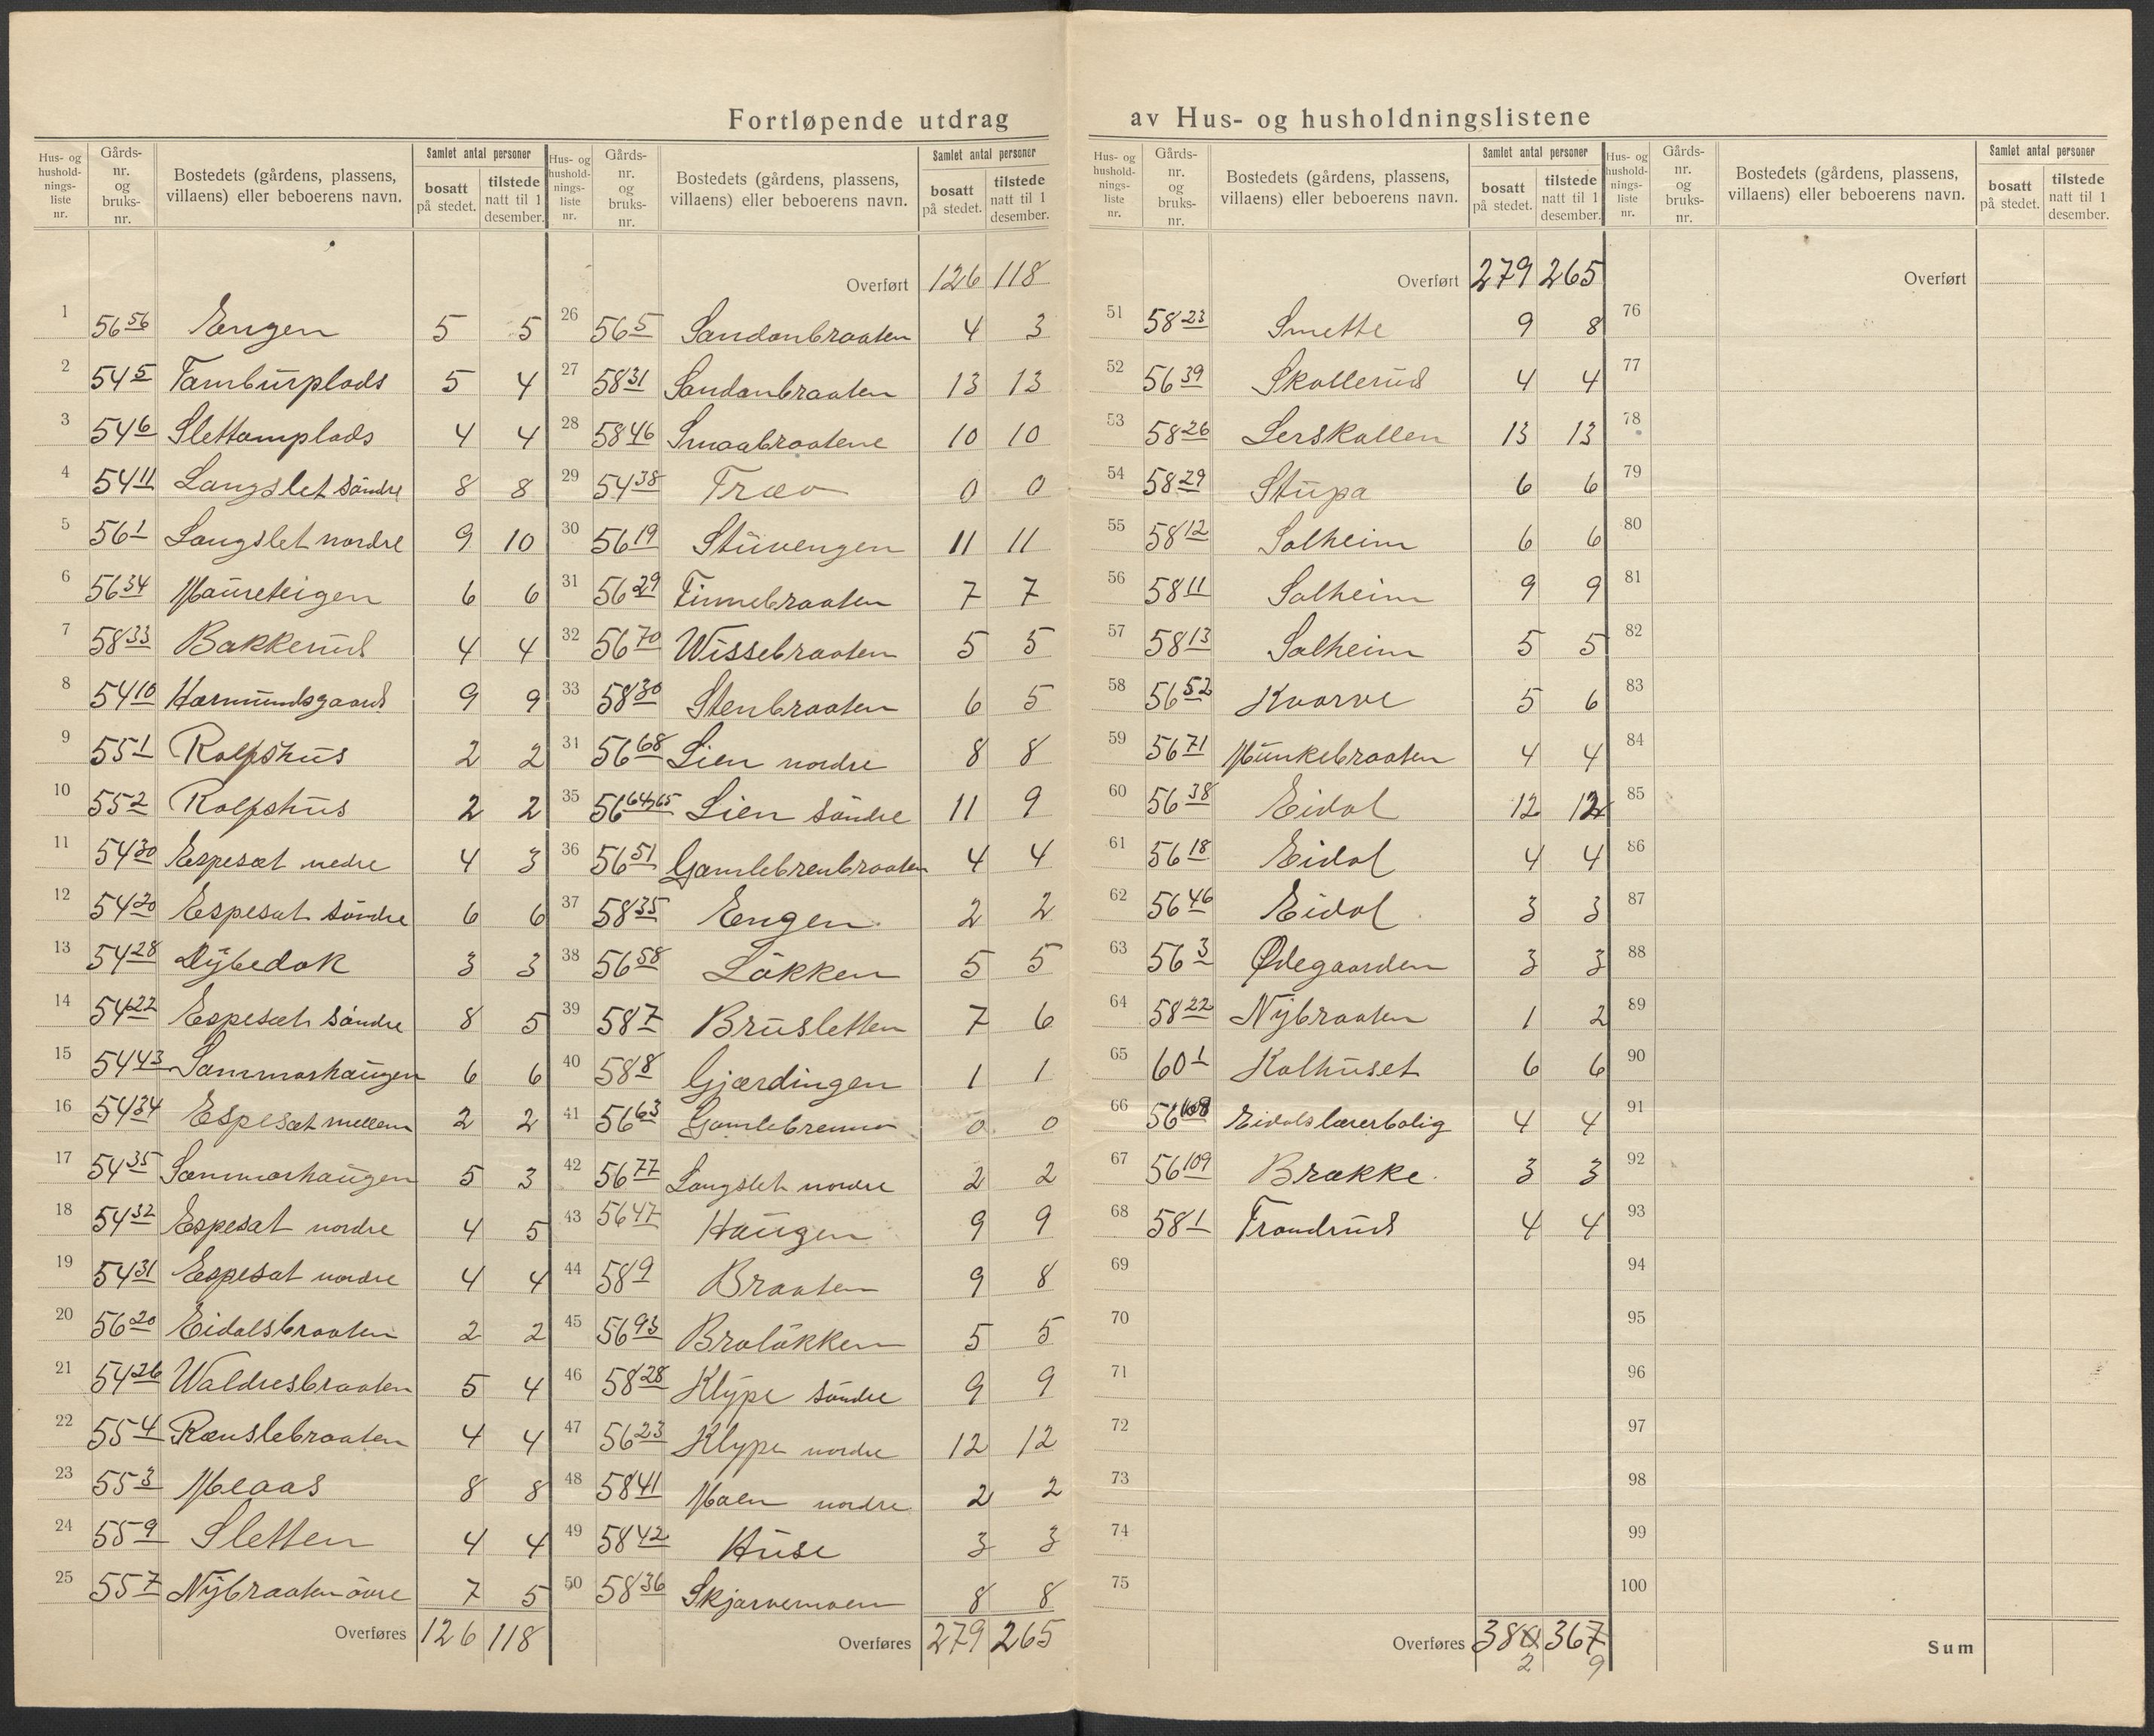 Fortløpende utdrag av Hus- og husholdningslistene
Hus- og hushold-nings-liste nr. Gårds-nr. og bruks-nr. Bostedets (gårdens, plassens, villaens) eller beboerens navn. Samlet antal personer bosatt på stedet. tilstede natt til 1 desember.
1 56 56 Engen 5 5
2 54 5 Tamburplads 5 4
3 54 6 Slettamplads 4 4
4 54 11 Langslet söndre 8 8
5 56 1 Langslet nordre 9 10
6 56 34 Maureteigen 6 6
7 58 33 Bakkerud 4 4
8 54 10 Harmundsgaard 9 9
9 55 1 Rolfshus 2 2
10 55 2 Rolfshus 2 2
11 54 30 Espesæt nedre 4 3
12 54 20 Espesæt söndre 6 6
13 54 28 Dybedok 3 3
14 54 22 Espesæt söndre 8 5
15 54 43 Sammorhaugen 6 6
16 54 34 Espesæt mellem 2 2
17 54 35 Sammorhaugen 5 3
18 54 32 Espesæt nordre 4 5
19 54 31 Espesæt nordre 4 4
20 56 20 Eidalsbraaten 2 2
21 54 26 Waldresbraaten 5 4
22 55 4 Rænslebraaten 4 4
23 55 3 Meaas 8 8
24 55 9 Sletten 4 4
25 55 7 Nybraaten övre 7 5
Overføres 126 118
Hus- og hushold-nings-liste nr. Gårds-nr. og bruks-nr. Bostedets (gårdens, plassens, villaens) eller beboerens navn. Samlet antal personer bosatt på stedet. tilstede natt til 1 desember.
Overført 126 118
26 56 5 Sandanbraaten 4 3
27 58 31 Sandanbraaten 13 13
28 58 46 Smaabraatene 10 10
29 54 38 Træo 0 0
30 56 19 Stuvengen 11 11
31 56 29 Finnebraaten 7 7
32 56 70 Wissebraaten 5 5
33 58 30 Stenbraaten 6 5
31 56 68 Lien nordre 8 8
35 56 64,65 Lien söndre 11 9
36 56 51 Gamlebrenbraaten 4 4
37 58 35 Engen 2 2
38 56 58 Lökken 5 5
39 58 7 Brusletten 7 6
40 58 8 Gjærdingen 1 1
41 56 63 Gamlebrenna 0 0
42 56 77 Langslet nordre 2 2
43 56 47 Haugen 9 9
44 58 9 Braaten 9 8
45 56 93 Bralökken 5 5
46 58 28 Klype söndre 9 9
47 56 23 Klype nordre 12 12
48 58 41 Moen nordre 2 2
49 58 42 Huse 3 3
50 58 36 Skjarvemoen 8 8
Overføres 279 265
Hus- og hushold-nings-liste nr. Gårds-nr. og bruks-nr. Bostedets (gårdens, plassens, villaens) eller beboerens navn. Samlet antal personer bosatt på stedet. tilstede natt til 1 desember.
Overført 279 265
51 58 23 Smette 9 8
52 56 39 Skollerud 4 4
53 58 26 Lerskallen 13 13
54 58 29 Stupa 6 6
55 58 12 Solheim 6 6
56 58 11 Solheim 9 9
57 58 13 Solheim 5 5
58 56 52 Kvarve 5 6
59 56 71 Munkebraaten 4 4
60 56 38 Eidal 12 12
61 56 18 Eidal 4 4
62 56 46 Eidal 3 3
63 56 3 Ødegaarden 3 3
64 58 22 Nybraaten 1 2
65 60 1 Kolhuset 6 6
66 56 108 Eidals lærerbolig 4 4
67 56 109 Brakke 3 3
68 58 1 Trondrud 4 4
69
70
71
72
73
74
75
Overføres 380 367
2 9
Hus- og hushold-nings-liste nr. Gårds-nr. og bruks-nr. Bostedets (gårdens, plassens, villaens) eller beboerens navn. Samlet antal personer bosatt på stedet. tilstede natt til 1 desember.
Overført
76
77
78
79
80
81
82
83
84
85
86
87
88
89
90
91
92
93
94
95
96
97
98
99
100
Sum